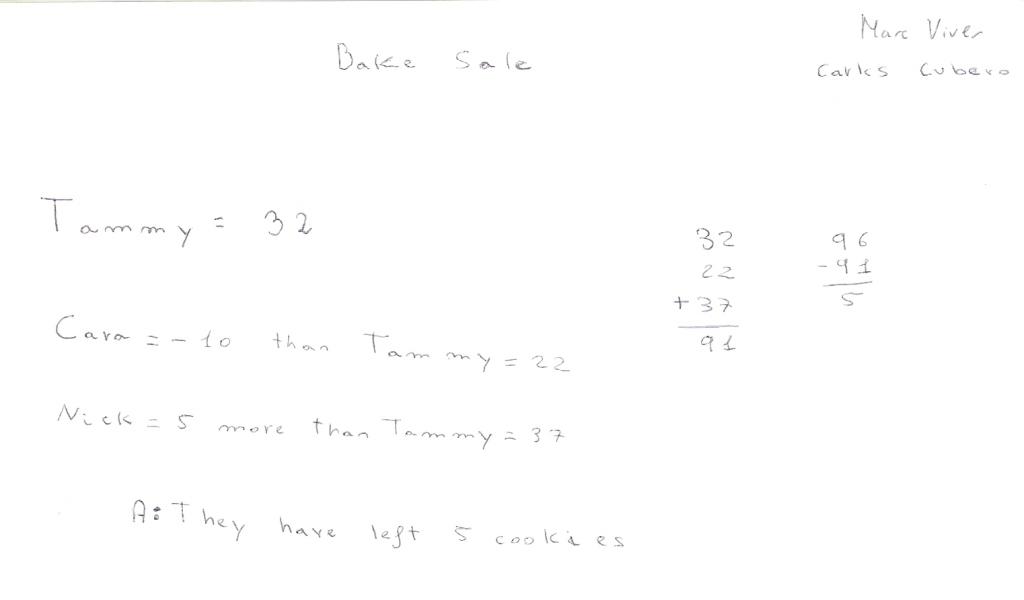 Marc Viver
Bake Sale
Carles Cubero
Tammy = 32
Cara = - 10 than Tammy = 22
Nick = 5 more than Tammy = 37
A: They have left 5 cookies
32
22
+ 37
91
96
- 91
5